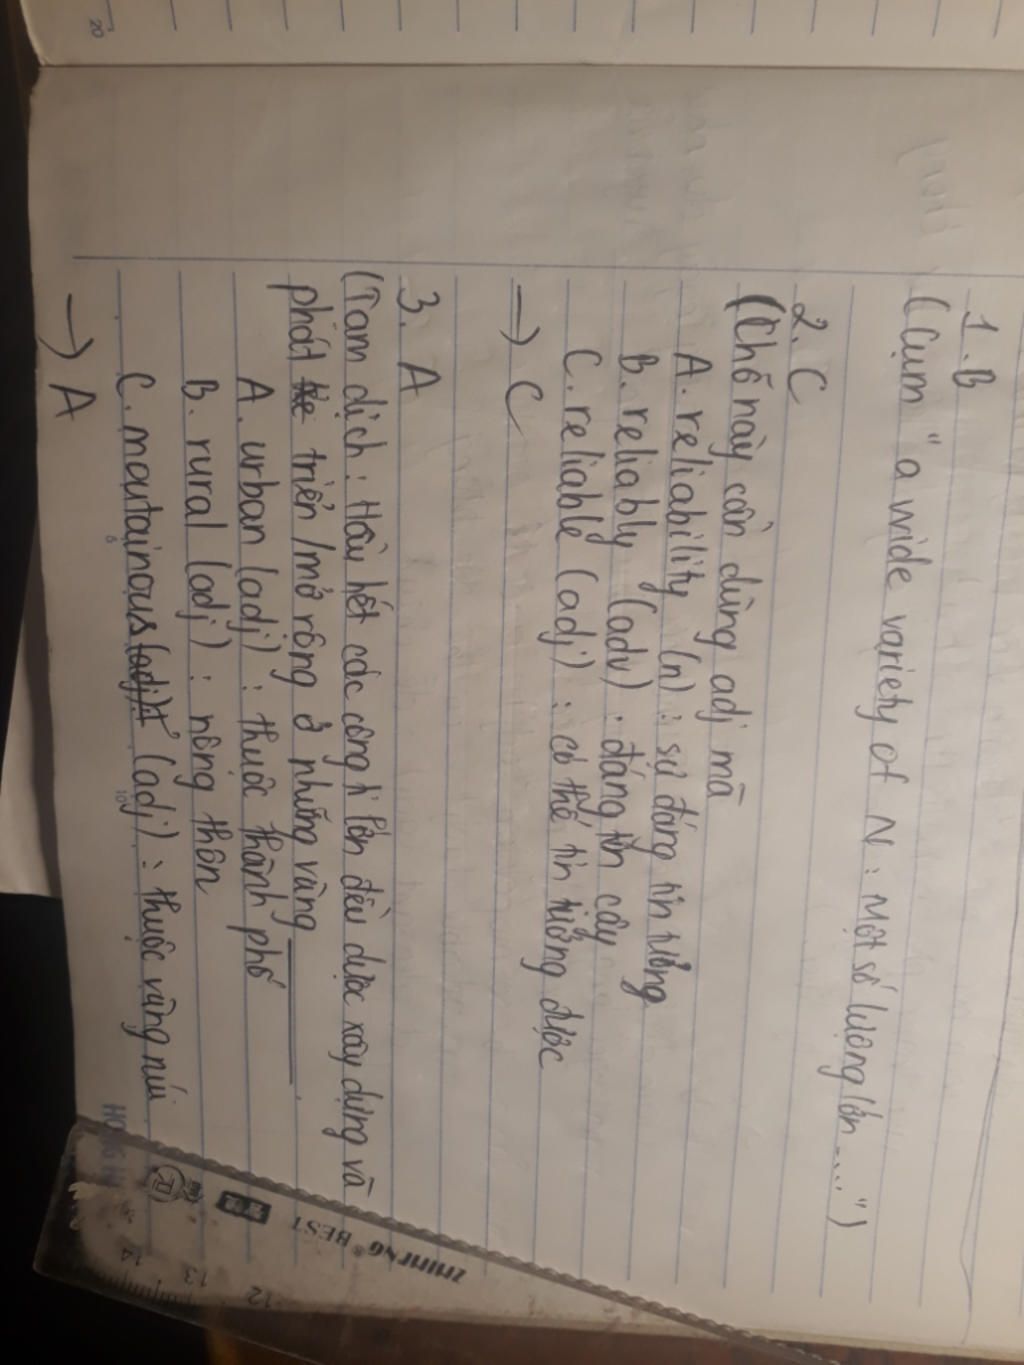 1. B
(Cụm "a wide variety of N : Một số lượng lớn ....")
2. C
(Chỗ này cần dùng adj mà
A. reliability (n) : sự đáng tin tưởng
B. reliably (adv) : đáng tin cậy
C. reliable (adj) : có thể tin tưởng được
→ C
3. A
(Tạm dịch : Hầu hết các công ti lớn đều được xây dựng và
phát triển / mở rộng ở những vùng ____
A. urban (adj) : thuộc thành phố
B. rural (adj) : nông thôn
C. moutainous (adj) : thuộc vùng núi
→ A
BEST
12 13 14
20